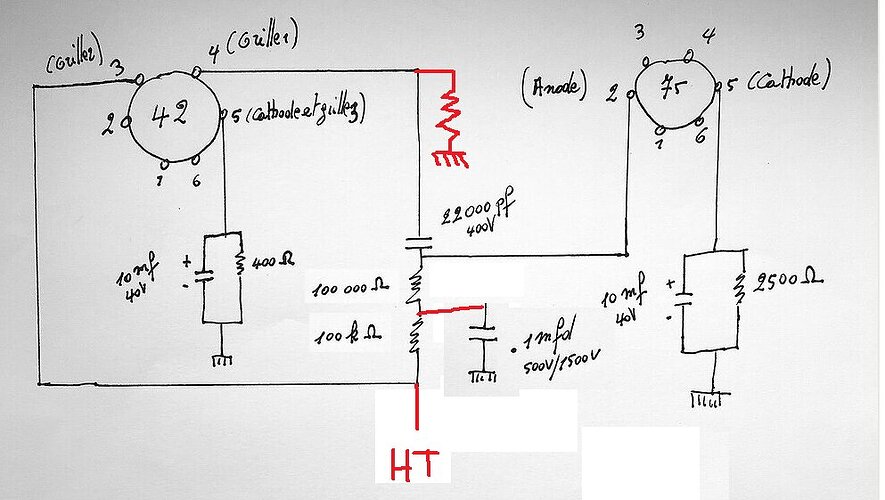 4 (Grille1)
(Grille2) 3
42
2
5 (Cathode et grille3)
1 6
3 4
(Anode) 2
75
5 (Cathode)
1 6
22000 pf
400V
+ 10 mf
40V
-
400 Ω
100 000 Ω
100 k Ω
.1 mfd
500V/1500V
+ 10 mf
40V
-
2500 Ω
HT